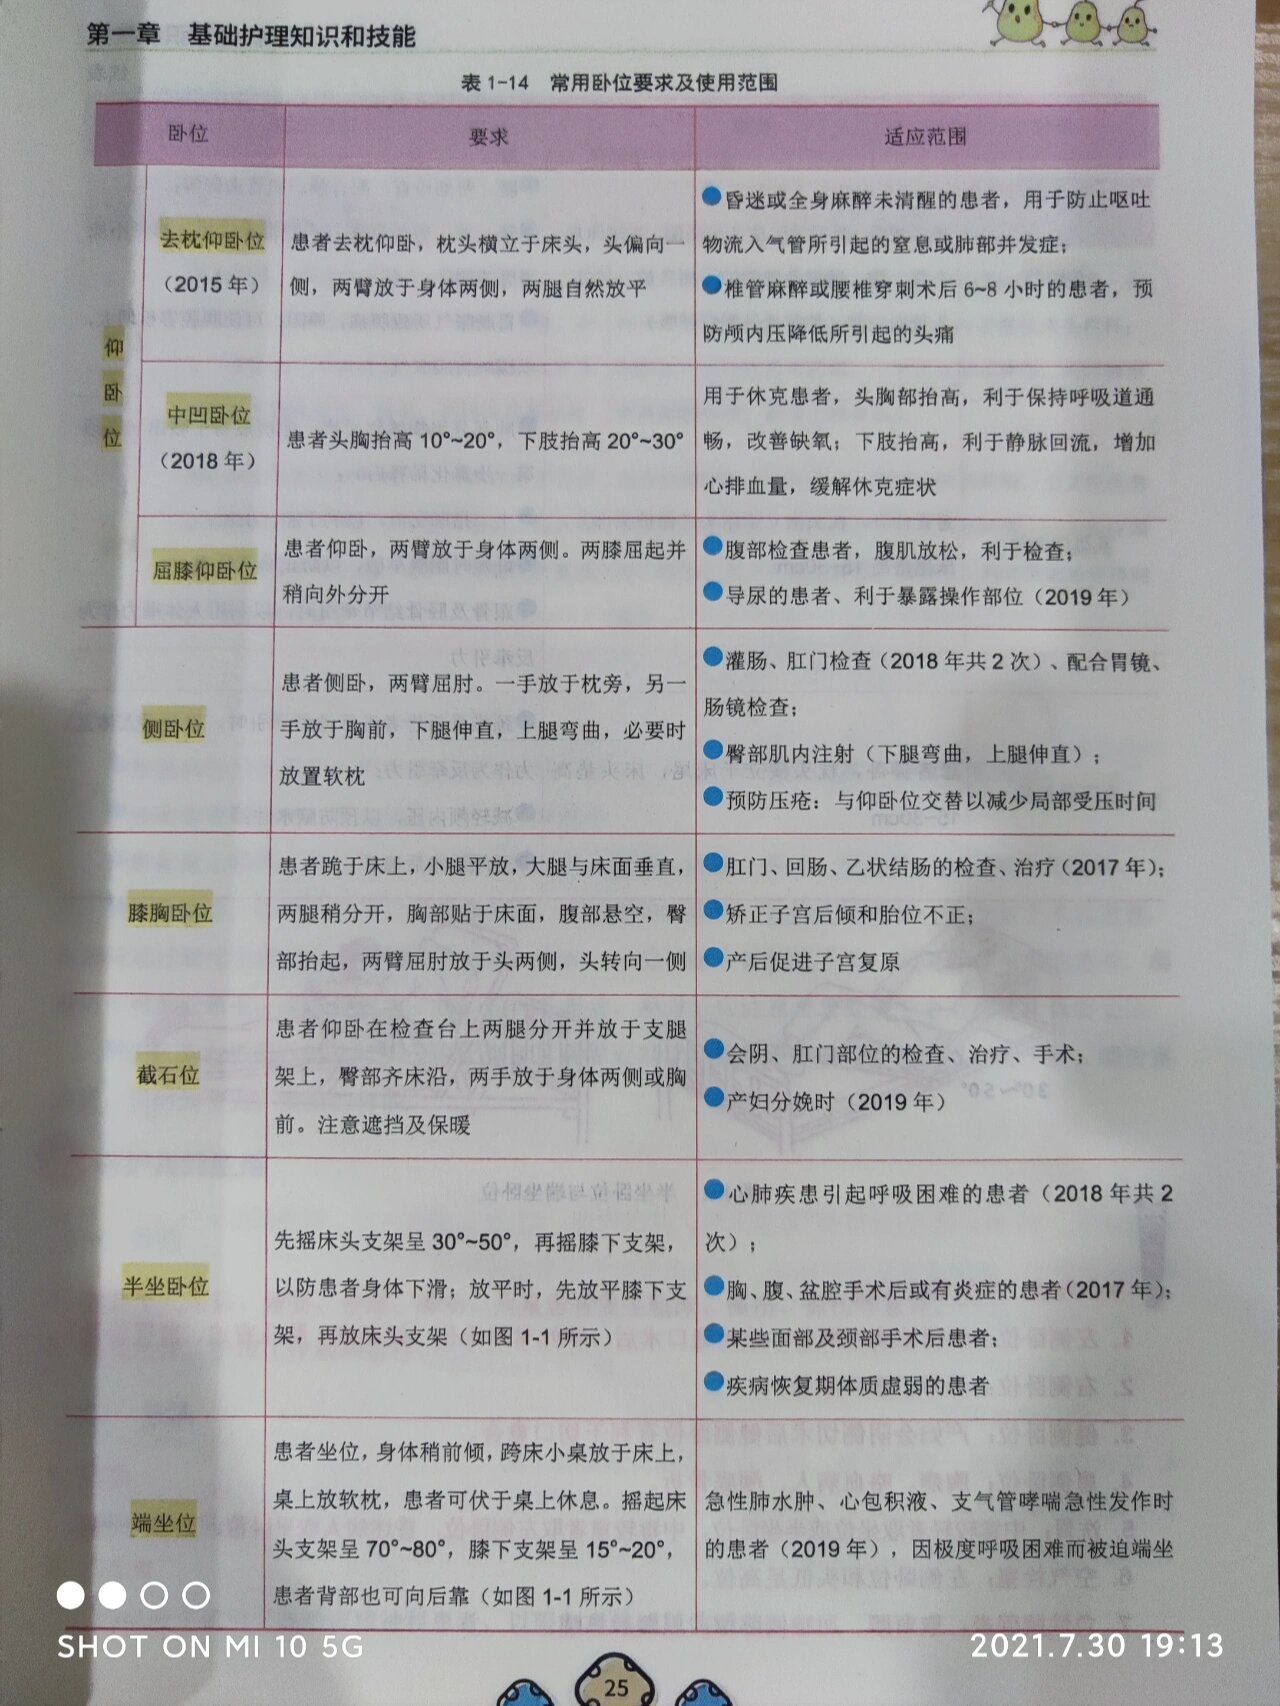 第一章 基础护理知识和技能
表 1-14 常用卧位要求及使用范围
卧位 要求 适应范围
仰
卧
位
去枕仰卧位
（2015 年）
患者去枕仰卧，枕头横立于床头，头偏向一
侧，两臂放于身体两侧，两腿自然放平
昏迷或全身麻醉未清醒的患者，用于防止呕吐
物流入气管所引起的窒息或肺部并发症；
椎管麻醉或腰椎穿刺术后 6~8 小时的患者，预
防颅内压降低所引起的头痛
中凹卧位
（2018 年）
患者头胸抬高 10°~20°，下肢抬高 20°~30°
用于休克患者，头胸部抬高，利于保持呼吸道通
畅，改善缺氧；下肢抬高，利于静脉回流，增加
心排血量，缓解休克症状
屈膝仰卧位
患者仰卧，两臂放于身体两侧。两膝屈起并
稍向外分开
腹部检查患者，腹肌放松，利于检查；
导尿的患者、利于暴露操作部位（2019 年）
侧卧位
患者侧卧，两臂屈肘。一手放于枕旁，另一
手放于胸前，下腿伸直，上腿弯曲，必要时
放置软枕
灌肠、肛门检查（2018 年共 2 次）、配合胃镜、
肠镜检查；
臀部肌内注射（下腿弯曲，上腿伸直）；
预防压疮：与仰卧位交替以减少局部受压时间
膝胸卧位
患者跪于床上，小腿平放，大腿与床面垂直，
两腿稍分开，胸部贴于床面，腹部悬空，臀
部抬起，两臂屈肘放于头两侧，头转向一侧
肛门、回肠、乙状结肠的检查、治疗（2017 年）；
矫正子宫后倾和胎位不正；
产后促进子宫复原
截石位
患者仰卧在检查台上两腿分开并放于支腿
架上，臀部齐床沿，两手放于身体两侧或胸
前。注意遮挡及保暖
会阴、肛门部位的检查、治疗、手术；
产妇分娩时（2019 年）
半坐卧位
先摇床头支架呈 30°~50°，再摇膝下支架，
以防患者身体下滑；放平时，先放平膝下支
架，再放床头支架（如图 1-1 所示）
心肺疾患引起呼吸困难的患者（2018 年共 2
次）；
胸、腹、盆腔手术后或有炎症的患者（2017 年）；
某些面部及颈部手术后患者；
疾病恢复期体质虚弱的患者
端坐位
患者坐位，身体稍前倾，跨床小桌放于床上，
桌上放软枕，患者可伏于桌上休息。摇起床
头支架呈 70°~80°，膝下支架呈 15°~20°，
患者背部也可向后靠（如图 1-1 所示）
急性肺水肿、心包积液、支气管哮喘急性发作时
的患者（2019 年），因极度呼吸困难而被迫端坐
25
SHOT ON MI 10 5G
2021.7.30 19:13